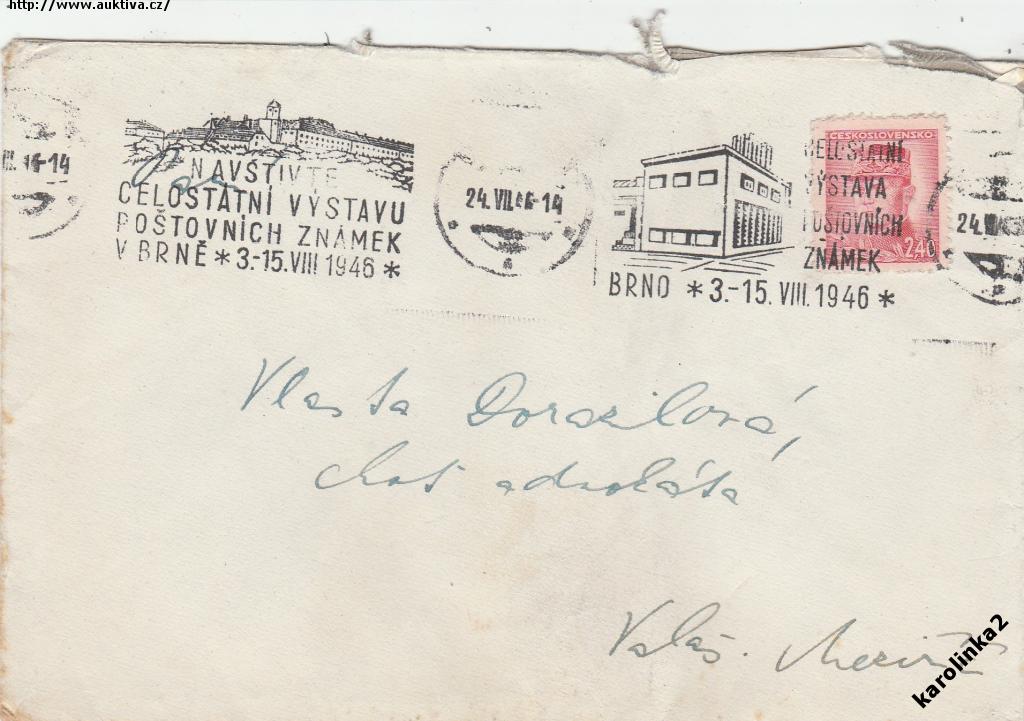 http://www.auktiva.cz/
NAVŠTIVTE
CELOSTÁTNÍ VÝSTAVU
POŠTOVNÍCH ZNÁMEK
V BRNĚ * 3-15.VIII 1946 *
24. VII. 46-14
ČESKOSLOVENSKO
2.40
CELOSTÁTNÍ
VÝSTAVA
POŠTOVNÍCH
ZNÁMEK
BRNO * 3.-15. VIII. 1946 *
Vlasta Dorazilová,
choť advokáta
Valaš.
karolinka2